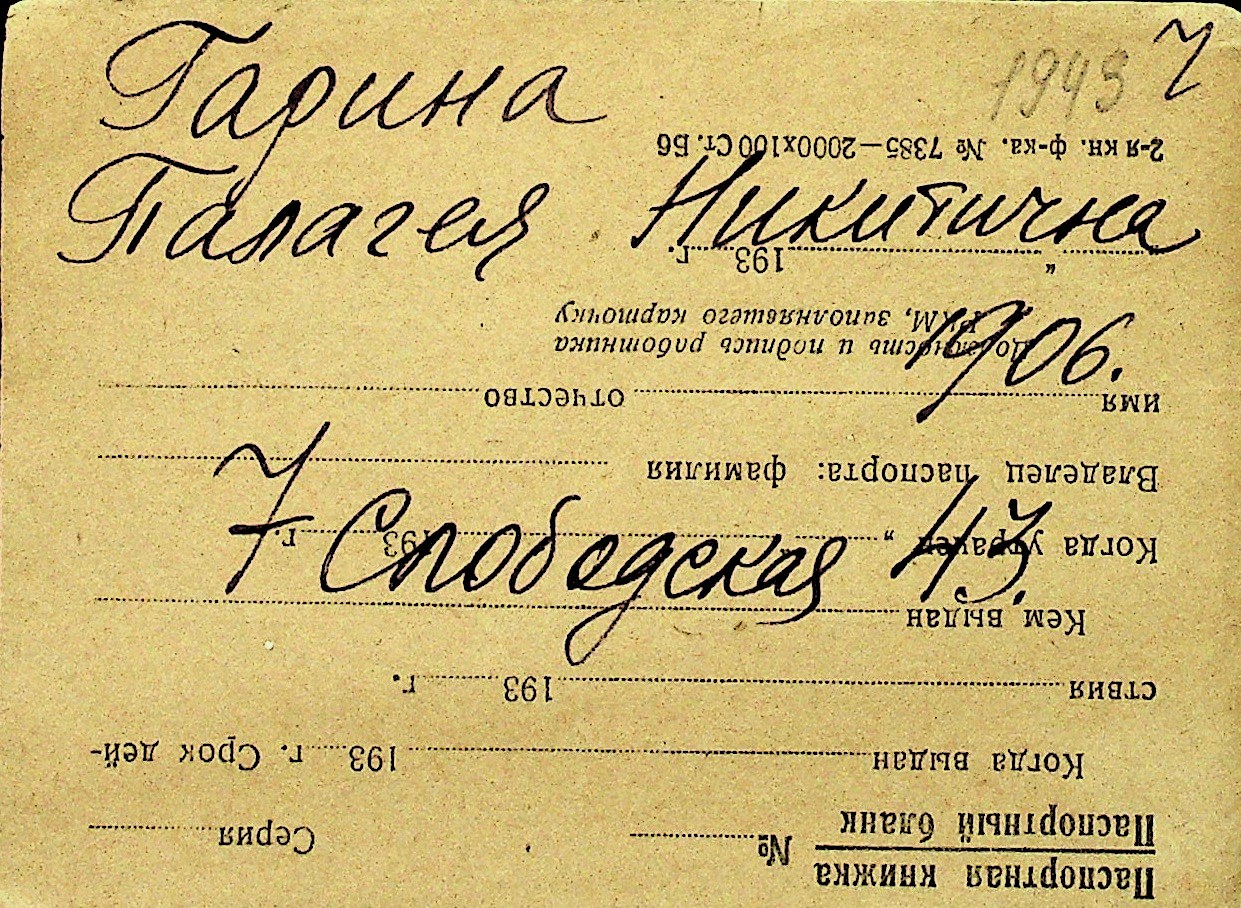 1943 7
Гарина
Палагея Никитична
1906.
7 Слободская 43.
Паспортная книжка
Паспортный бланк
№ Серия
Когда выдан 193 г. Срок дей-
ствия 193 г.
Кем выдан
Когда утрачен „ 193 г.
Владелец паспорта: фамилия
имя отчество
Должность и подпись работника
РКМ, заполнявшего карточку
„ 193 г.
2-я кн. ф-ка. № 7385—2000х100 Ст. Бб